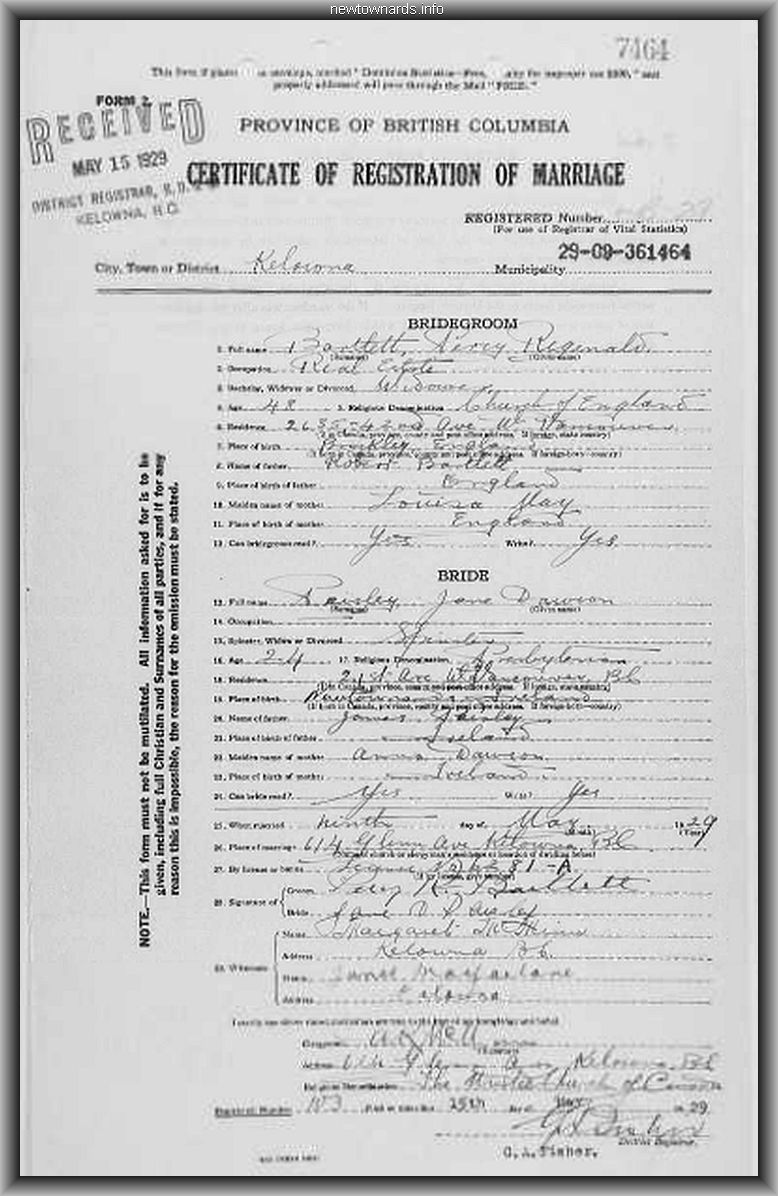 newtownards.info
7464
FORM 2.
RECEIVED
MAY 15 1929
DISTRICT REGISTRAR, B.D.
KELOWNA, B.C.
PROVINCE OF BRITISH COLUMBIA
CERTIFICATE OF REGISTRATION OF MARRIAGE
REGISTERED Number
(For use of Registrar of Vital Statistics)
29-09-361464
City, Town or District Kelowna Municipality
NOTE.—This form must not be mutilated. All information asked for is to be
given, including full Christian and Surnames of all parties, and if for any
reason this is impossible, the reason for the omission must be stated.
BRIDEGROOM
1. Full name Bartlett, Percy Reginald
(Surname) (Given name)
2. Occupation Real Estate
3. Bachelor, Widower or Divorced Widower
4. Age 48 5. Religious Denomination Church of England
6. Residence 2635-42nd Ave W. Vancouver
7. Place of birth England
8. Name of father Robert Bartlett
9. Place of birth of father England
10. Maiden name of mother Louisa May
11. Place of birth of mother England
12. Can bridegroom read? Yes Write? Yes
BRIDE
13. Full name Paisley, Jane Dawson
(Surname) (Given name)
14. Occupation
15. Spinster, Widow or Divorced Spinster
16. Age 24 17. Religious Denomination Presbyterian
18. Residence 21st Ave W. Vancouver, BC
19. Place of birth Newtownards Ireland
20. Name of father James Paisley
21. Place of birth of father Ireland
22. Maiden name of mother Anna Dawson
23. Place of birth of mother Ireland
24. Can bride read? Yes Write? Yes
25. When married ninth day of May 1929
(Month) (Year)
26. Place of marriage 614 Glenn Ave Kelowna, BC
27. By license or banns License
28. Signature of Groom Percy R. Bartlett
Bride Jane D Paisley
29. Witnesses Name Margaret
Address Kelowna BC
Name Macfarlane
Address Kelowna
Clergyman
Address Glenn Ave Kelowna BC
Religious Denomination The United Church of Canada
15th day of May 1929
District Registrar.
G.A. Fisher.